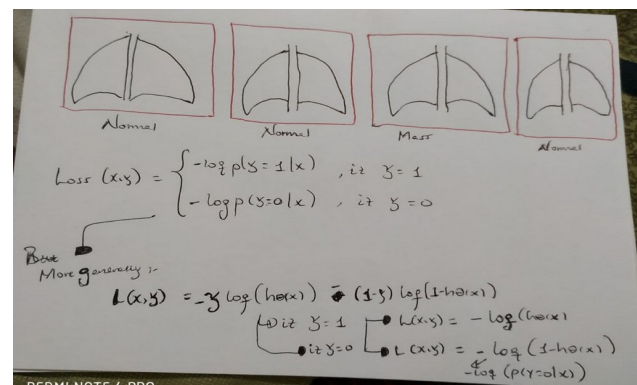 Normal Normal Mass Normal
Loss (x,y) = { -log p(y=1|x) , if y=1
-log p(y=0|x) , if y=0
More generally :-
L(x,y) = -y log(hθ(x)) - (1-y) log(1-hθ(x))
if y=1 L(x,y) = -log(hθ(x)
if y=0 L(x,y) = -log(1-hθ(x))
-log(p(y=0|x)
REDMI NOTE 4 PRO